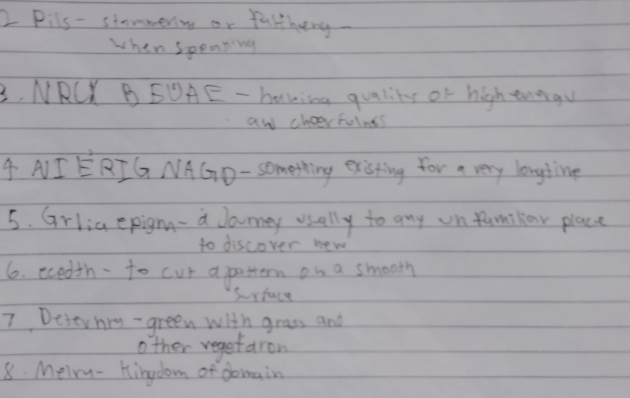 2 Pils - stammering or
when speaking
3. - having quality of high energy
and cheerfulness
4 - something existing for a very longtime
5. - a Journey usally to any unfamiliar place
to discover new
6. ecedth - to cut a pattern on a smooth
surface
7. - green with grass and
other vegetaron
8. Melru - Kingdom of domain